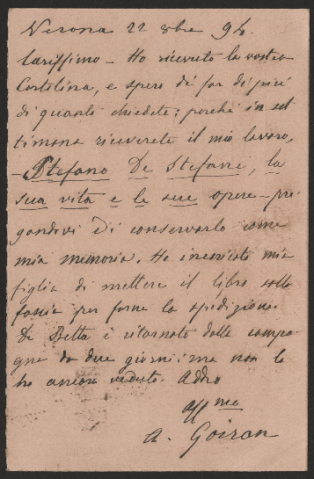 Verona 22 8bre 94.
Carissimo – Ho ricevuto la vostra
Cartolina, e spero di far di più
di quanto chiedete; perchè in set
timana riceverete il mio lavoro,
– Stefano De Stefani, la
sua vita e le sue opere – pre
gandovi di conservarlo come
mia memoria. Ho incaricato mia
figlia di mettere il libro sotto
fascia per farne la spedizione.
De Betta è ritornato dalle campa
gne da due giorni; ma non l'
ho ancora veduto. Addio
aff.mo
A. Goiran